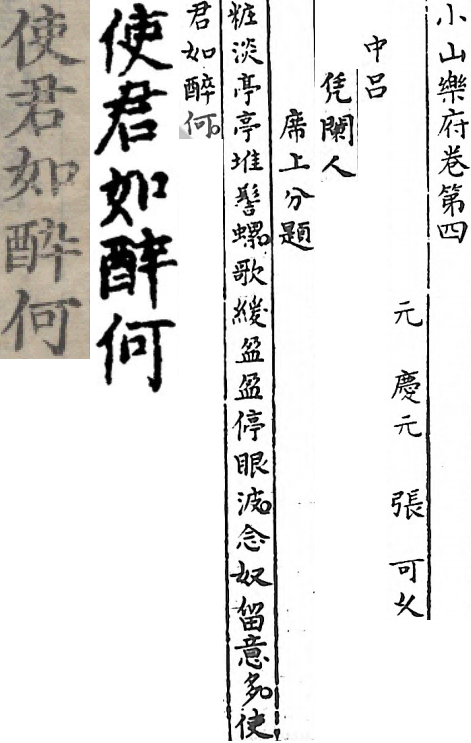 小山樂府卷第四
元 慶元 張 可久
中呂
凭闌人
席上分題
粧淡亭亭堆髻螺。歌緩盈盈停眼波。念奴留意多。使
君如醉何。
使君如酔何
使君如酔何